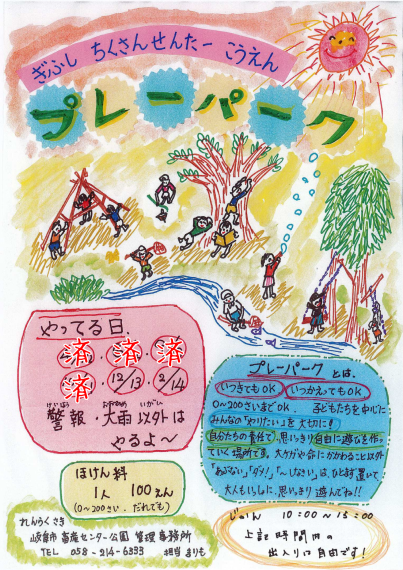 ぎふし ちくさんせんたー こうえん
プレーパーク
やってる日.
済・済・済
済・12/13・2/14
けいほう おおあめ いがい
警報・大雨以外は
やるよ〜
ほけん料
1人 100えん
(0〜200さい. だれでも)
プレーパークとは、
いつきてもOK いつかえってもOK
0〜200さいまでOK. 子どもたちを中心に
みんなの「やりたい」を大切に!!
自分たちの責任で、思いっきり自由に遊びを作っ
ていく場所です。大ケガや命にかかわること以外
「あぶない」「ダメ!」「〜しない」は、ひとまず置いて、
大人もいっしょに、思いっきり遊んでね!!
れんらくさき
岐阜市畜産センター公園 管理事務所
TEL 058-214-6333 担当 まりも
じかん 10:00〜15:00
上記時間内の
出入り口自由です!